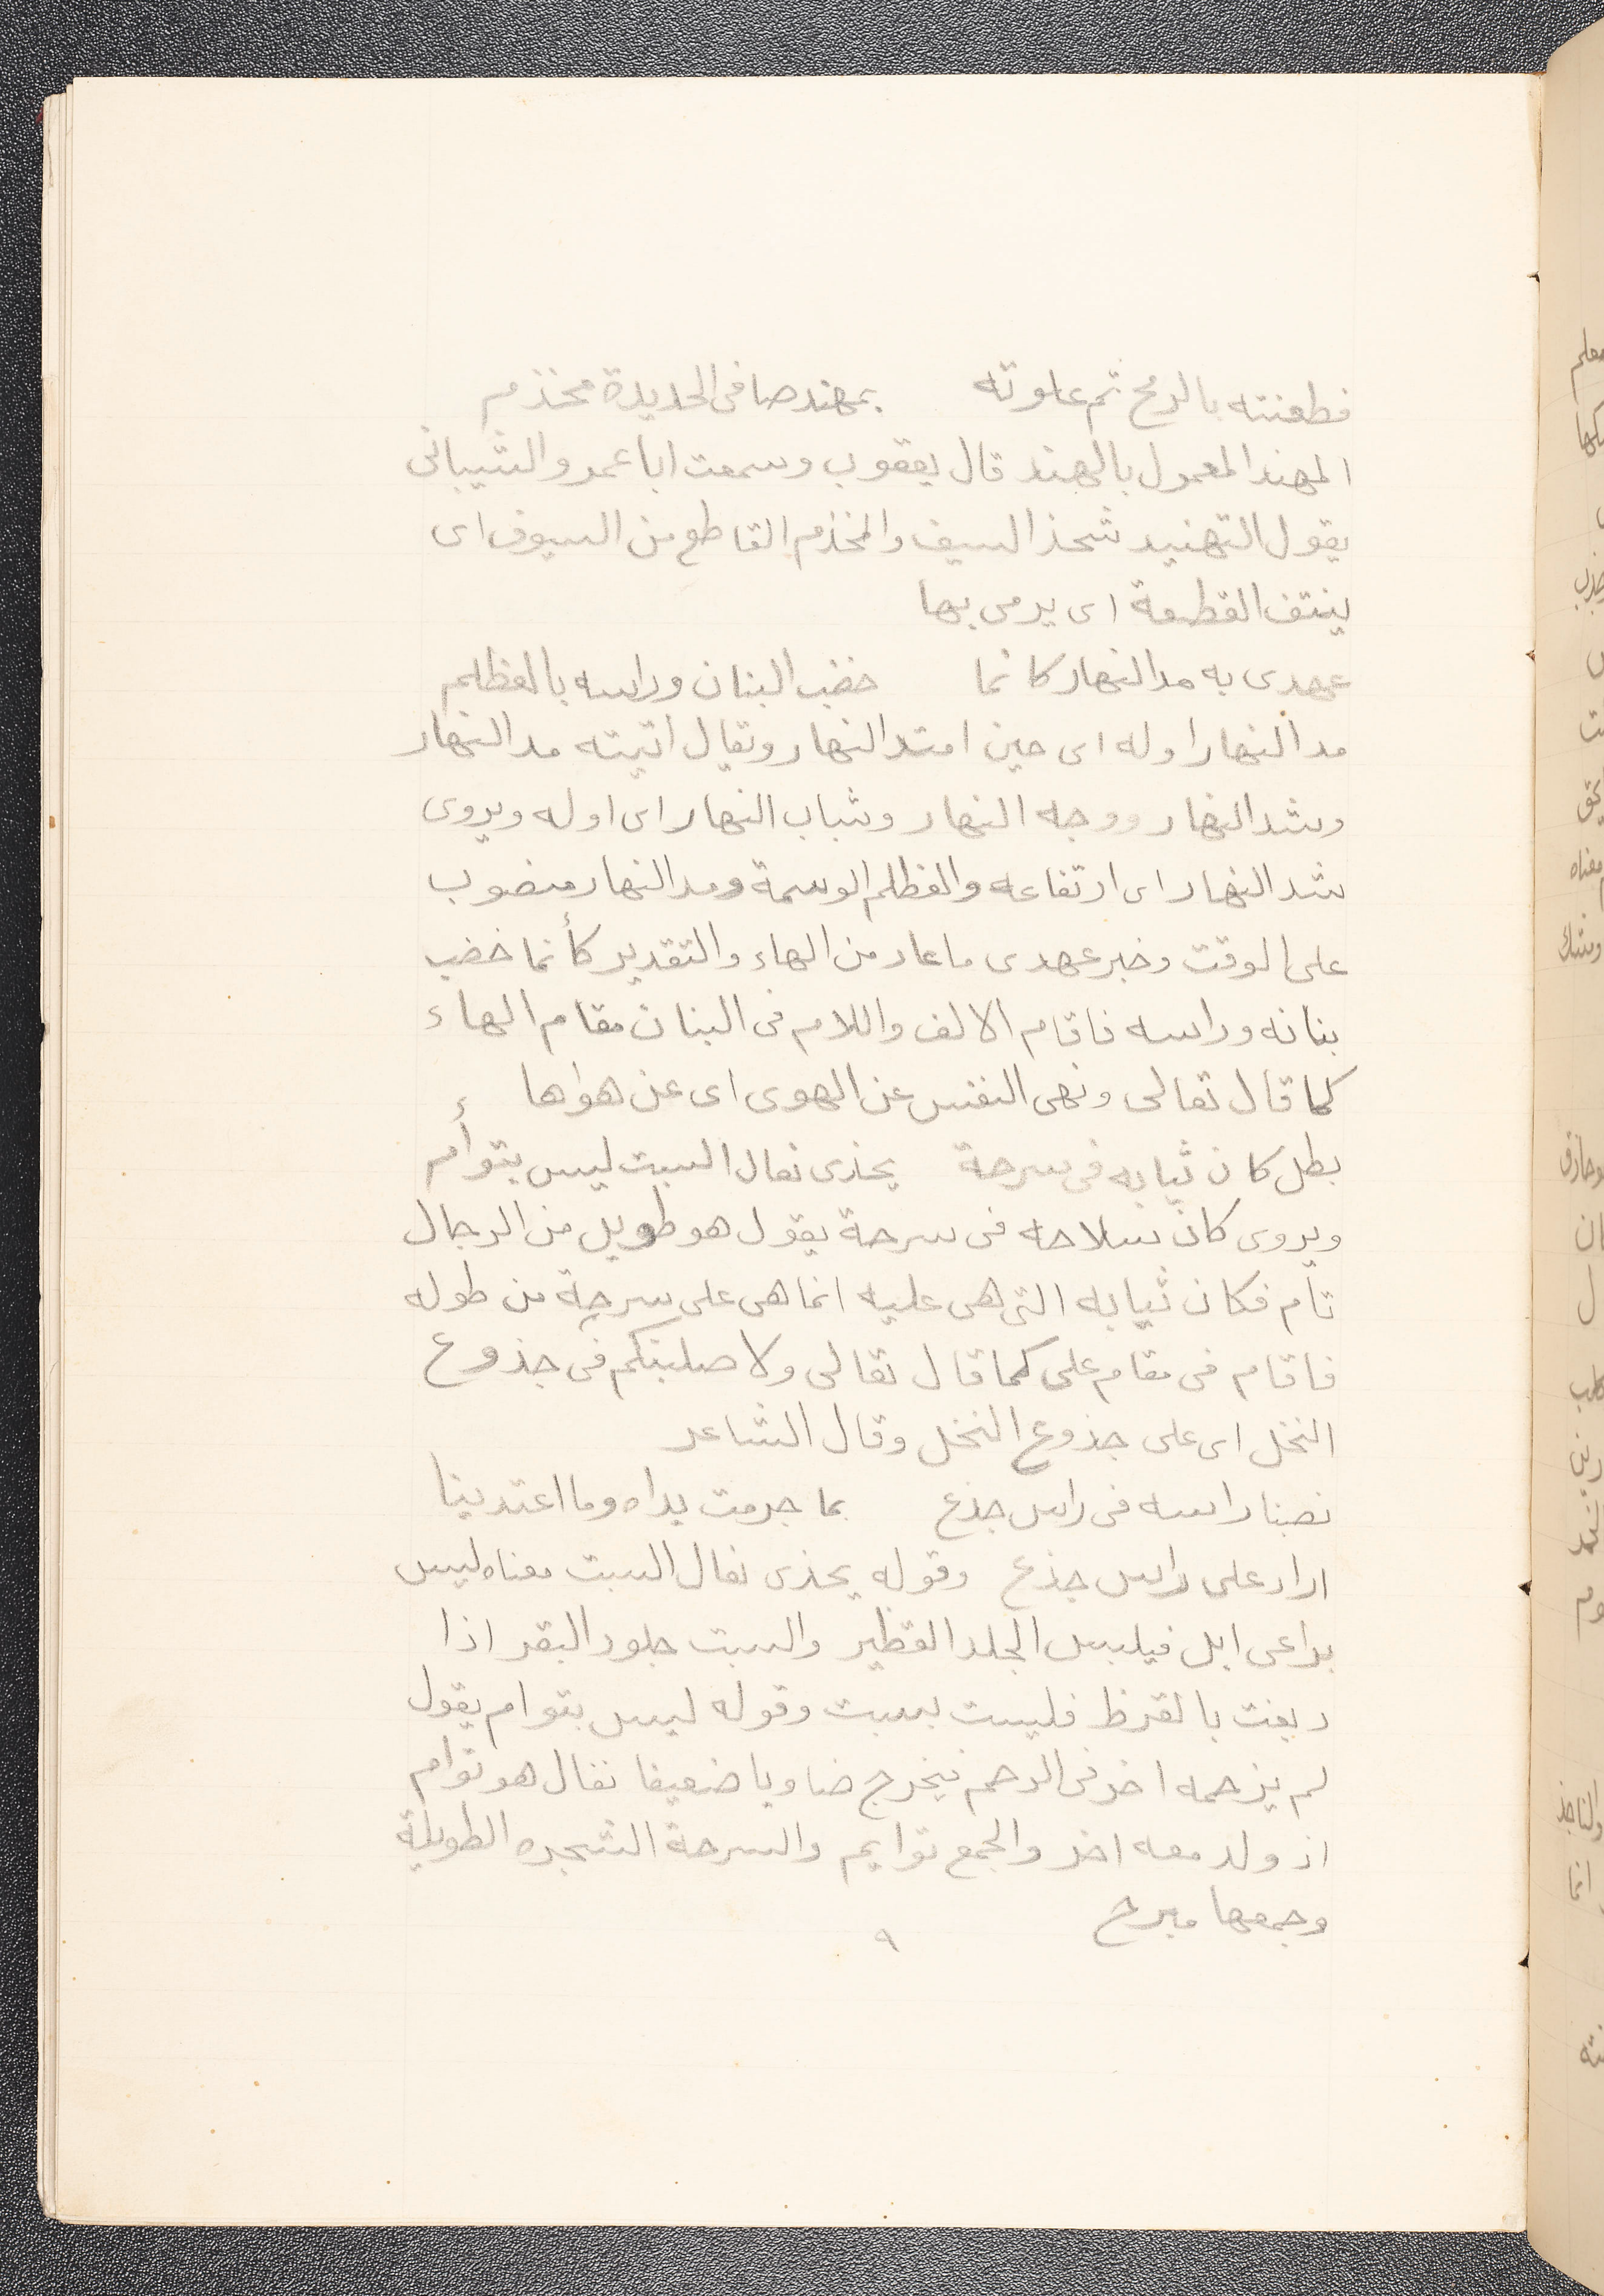 فطعنته بالرمح ثم علوته بمهند صافى الحديدة مخذم
المهند المعمول بالهند قال يعقوب وسمعت ابا عمرو الشيبانى
يقول التهنيد شحذ السيف والمخذم القاطع من السيوف اى
ينتف القطعة اى يرمى بها
عهدى به مد النهار كانما خضب البنان وراسه بالعظلم
مد النهار اوله اى حين امتد النهار ويقال اتيته مد النهار
وشد النهار ووجه النهار وشباب النهار اى اوله ويروى
شد النهار اى ارتفاعه والعظلم الوسمة ومد النهار منصوب
على الوقت وخبر عهدى ما عاد من الهاء والتقدير كأنما خضب
بنانه وراسه فاقام الالف واللام فى البنان مقام الهاء
كما قال تعالى ونهى النفس عن الهوى اى عن هواها
بطل كان ثيابه فى سرحة يحذى نعال السبت ليس بتوأم
ويروى كان سلاحه فى سرحة يقول هو طويل من الرجال
تام فكان ثيابه التى هى عليه انما هى على سرحة من طوله
فاقام فى مقام على كما قال تعالى ولاصلبنكم فى جذوع
النخل اى على جذوع النخل وقال الشاعر
نصبنا راسه فى راس جذع بما جرمت يداه وما اعتدينا
اراد على راس جذع وقوله يحذى نعال السبت معناه ليس
براعى ابل فيلبس الجلد الفطير والسبت جلود البقر اذا
دبغت بالقرظ فليست بسبت وقوله ليس بتوام يقول
لم يزحمه اخر فى الرحم فيخرج ضاويا ضعيفا نقال هو توام
اذ ولد معه اخر والجمع توايم والسرحة الشجره الطويلة
وجمعها سرح
٩